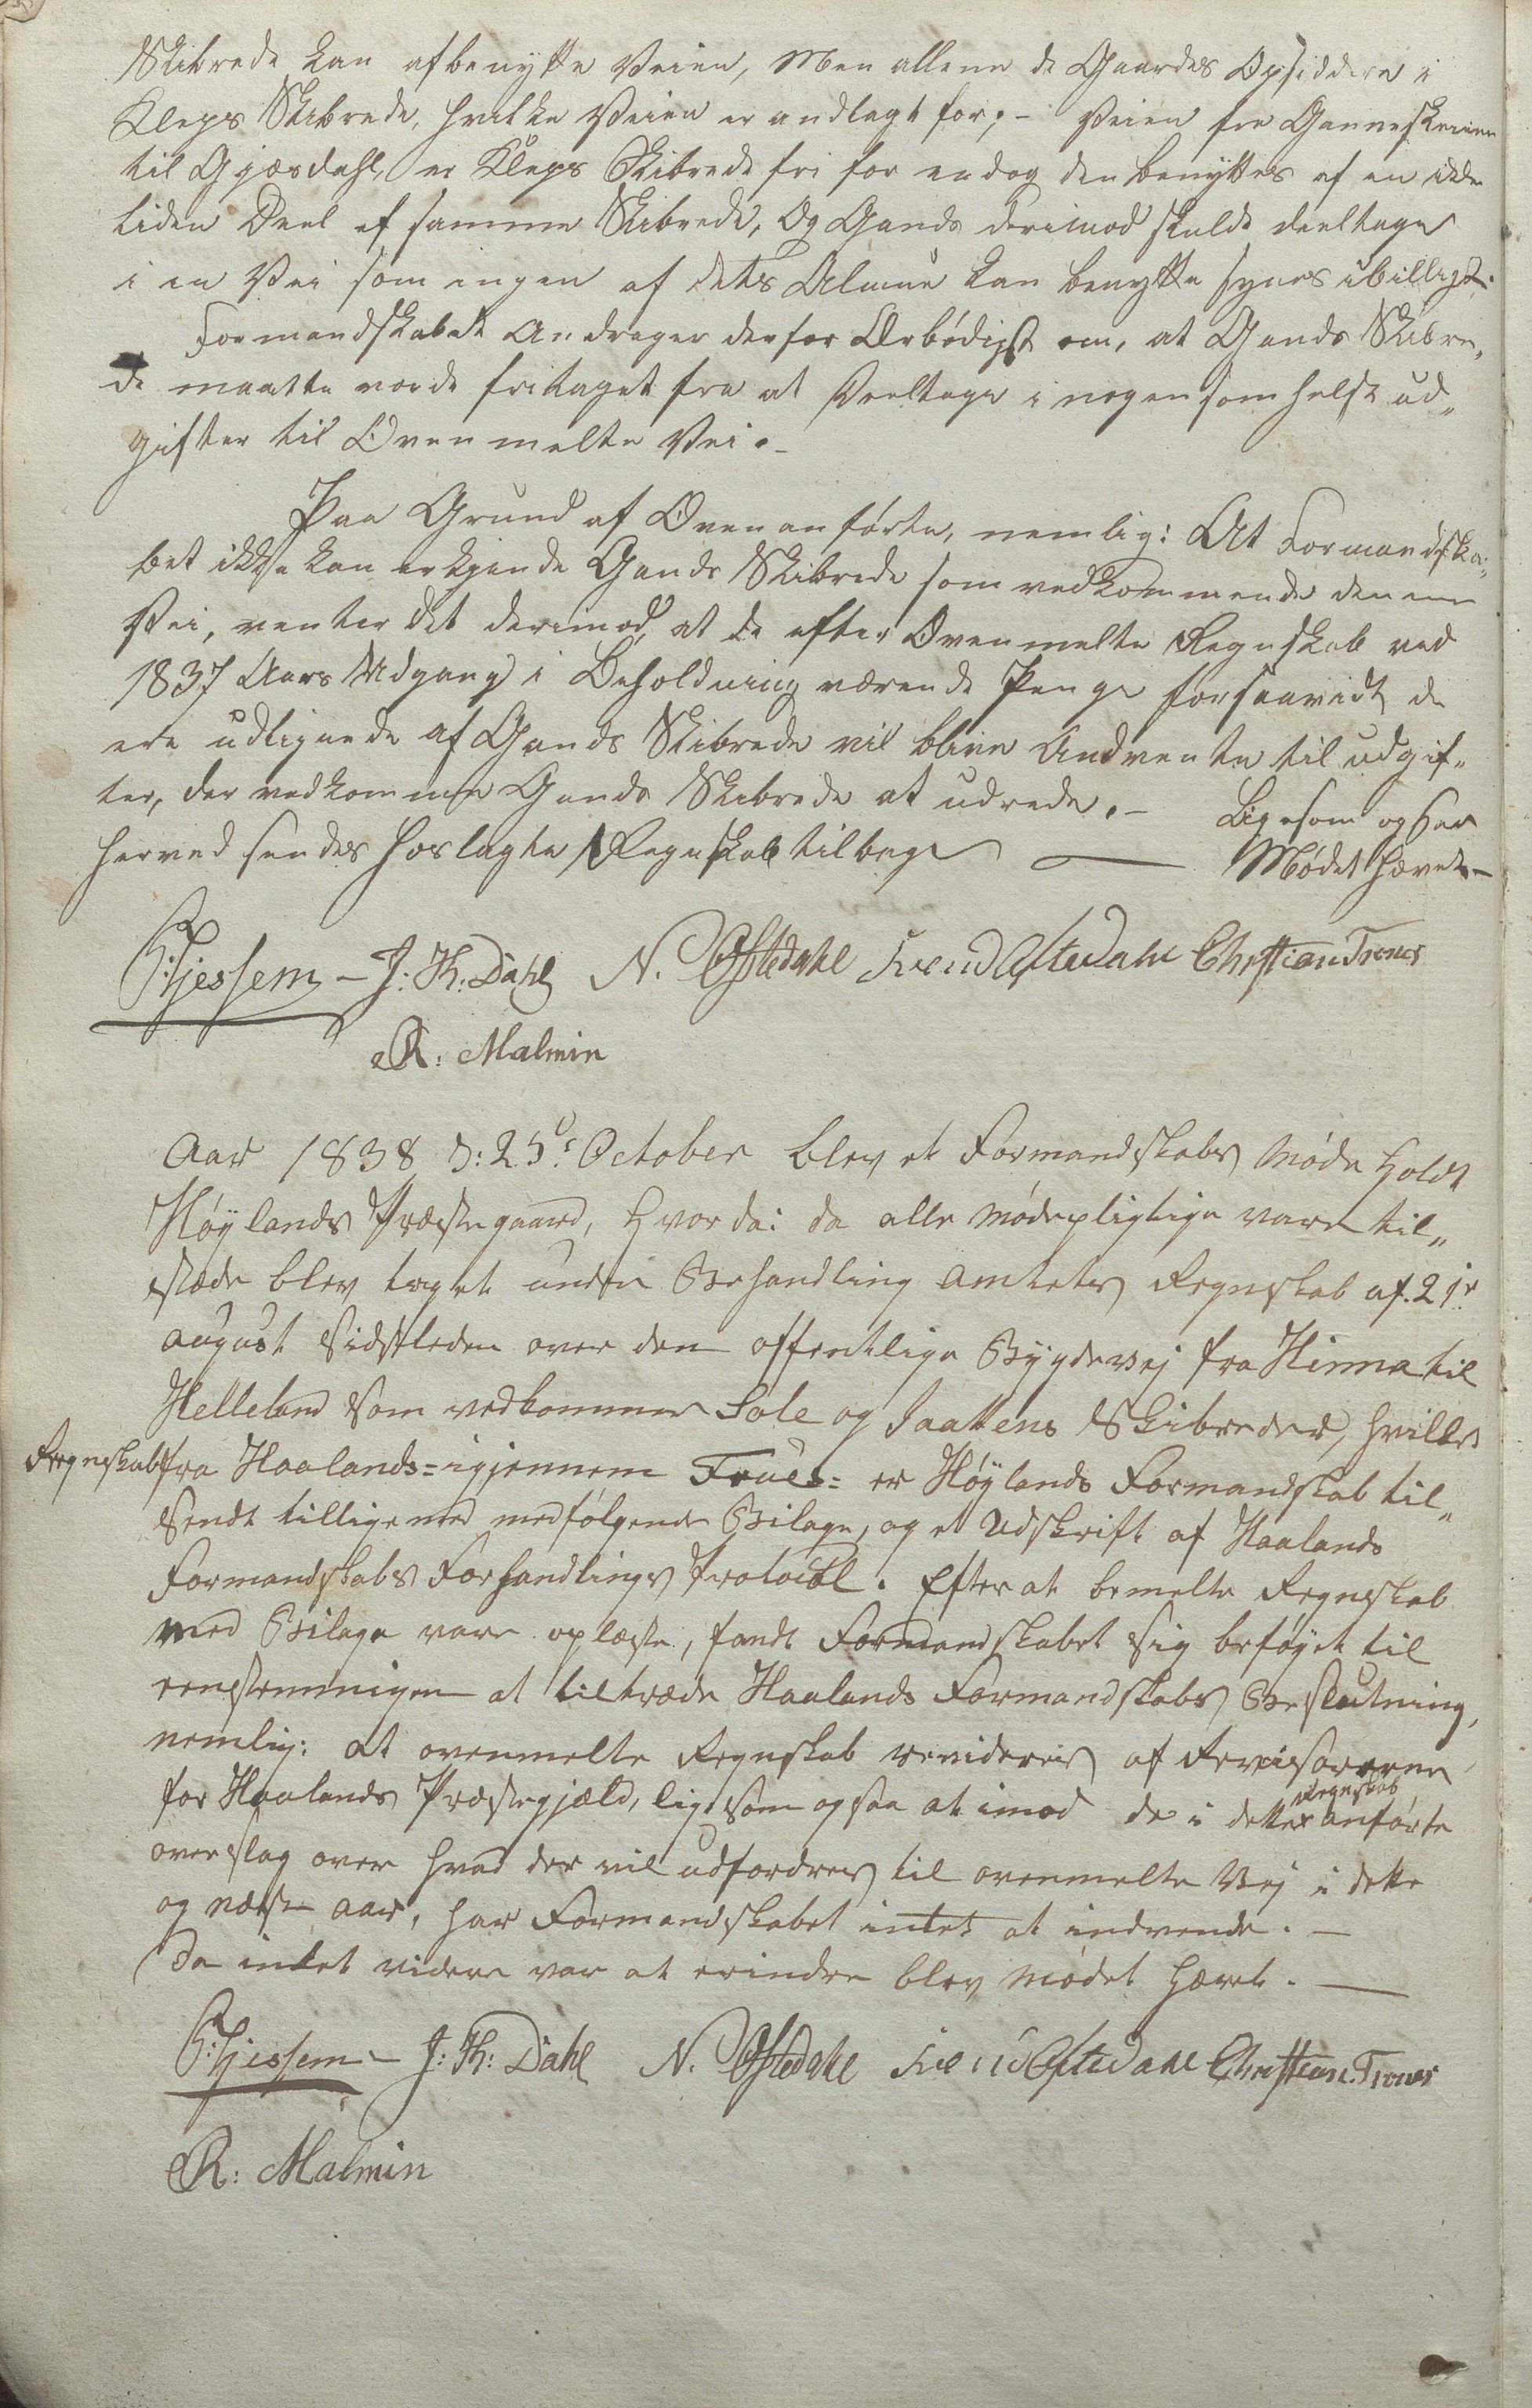 Skibrede kan afbenytte Veien, Men allene de Gaardes Opsiddere i
Kleps Skibrede, hvilke Veien er andlagt for; - Veien fra Gannes
til Gjæsdahl, er Kleps Skibrede fri for endog den benyttes af en ikke
liden Deel af samme Skibrede, Og Gands derimod skulde deeltage
i en Vei som ingen af dets Almue kan benytte synes ubilligt.
Formandskabet Andrager derfor Ærbødigst om, at Gands Skibre„
de maatte vorde fritaget fra at Deeltage i nogensomhelst ud„
gifter til Ovenmelte Vei. -
Paa Grund af Ovenanførte, nemlig: At Formandska„
bet ikke kan erkjende Gands Skibrede som vedkommende denne
Vei, venter det derimod, at de efter Ovenmelte Regnskab ved
1837 Aars Udgang i Beholdning værende Penge forsaavidt de
ere udlignede af Gands Skibrede vil blive Andvente til udgif„
ter, der vedkomme Gands Skibrede at udrede. - Ligesom ogsaa
herved sendes hoslagte Regnskab tilbage — Mødet hævet -
Gjessem - J: Th: Dahl N. Oftedahl Svend Oftedahl Christian Trones
R: Malmin
Aar 1838 D: 25d: October blev et Formandskabs Møde Holdt
Høylands Præstegaard, Hvor da: da alle Mødepligtige vare til„
stæde blev taget under Behandling Amtets Regnskab af 21de
august sidstleden over den offentlige Bygdevej fra Hinna til
Helleland som vedkommer Sole og Jaattens Skibreder, hvilke
Regnskab fra Haalands= igjennem = er Høylands Formandskab til„
sendt tilligemed medfølgende Bilage, og et Udskrift af Haalands
Formandskabs Forhandlings Protocol. Efter at bemelte Regnskab
med Bilage vare oplæste, fandt Formandskabet sig beføyet til
eenstemmigen at tiltræde Haalands Formandskabs Beslutning,
nemlig: at ovenmelte Regnskab revideres af Revisorerne
for Haalands Præstegjæld, ligesom ogsaa at imod de i dette Regnskab anførte
overslag over hvad der vil udfordres til ovenmelte Vej i dette
og næste Aar, har Formandskabet intet at indvende. -
Da intet videre var at erindre blev Mødet Hævet. —
Gjessem - J: Th: Dahl N. Oftedahl Svend Oftedahl Christian Trones
R: Malmin